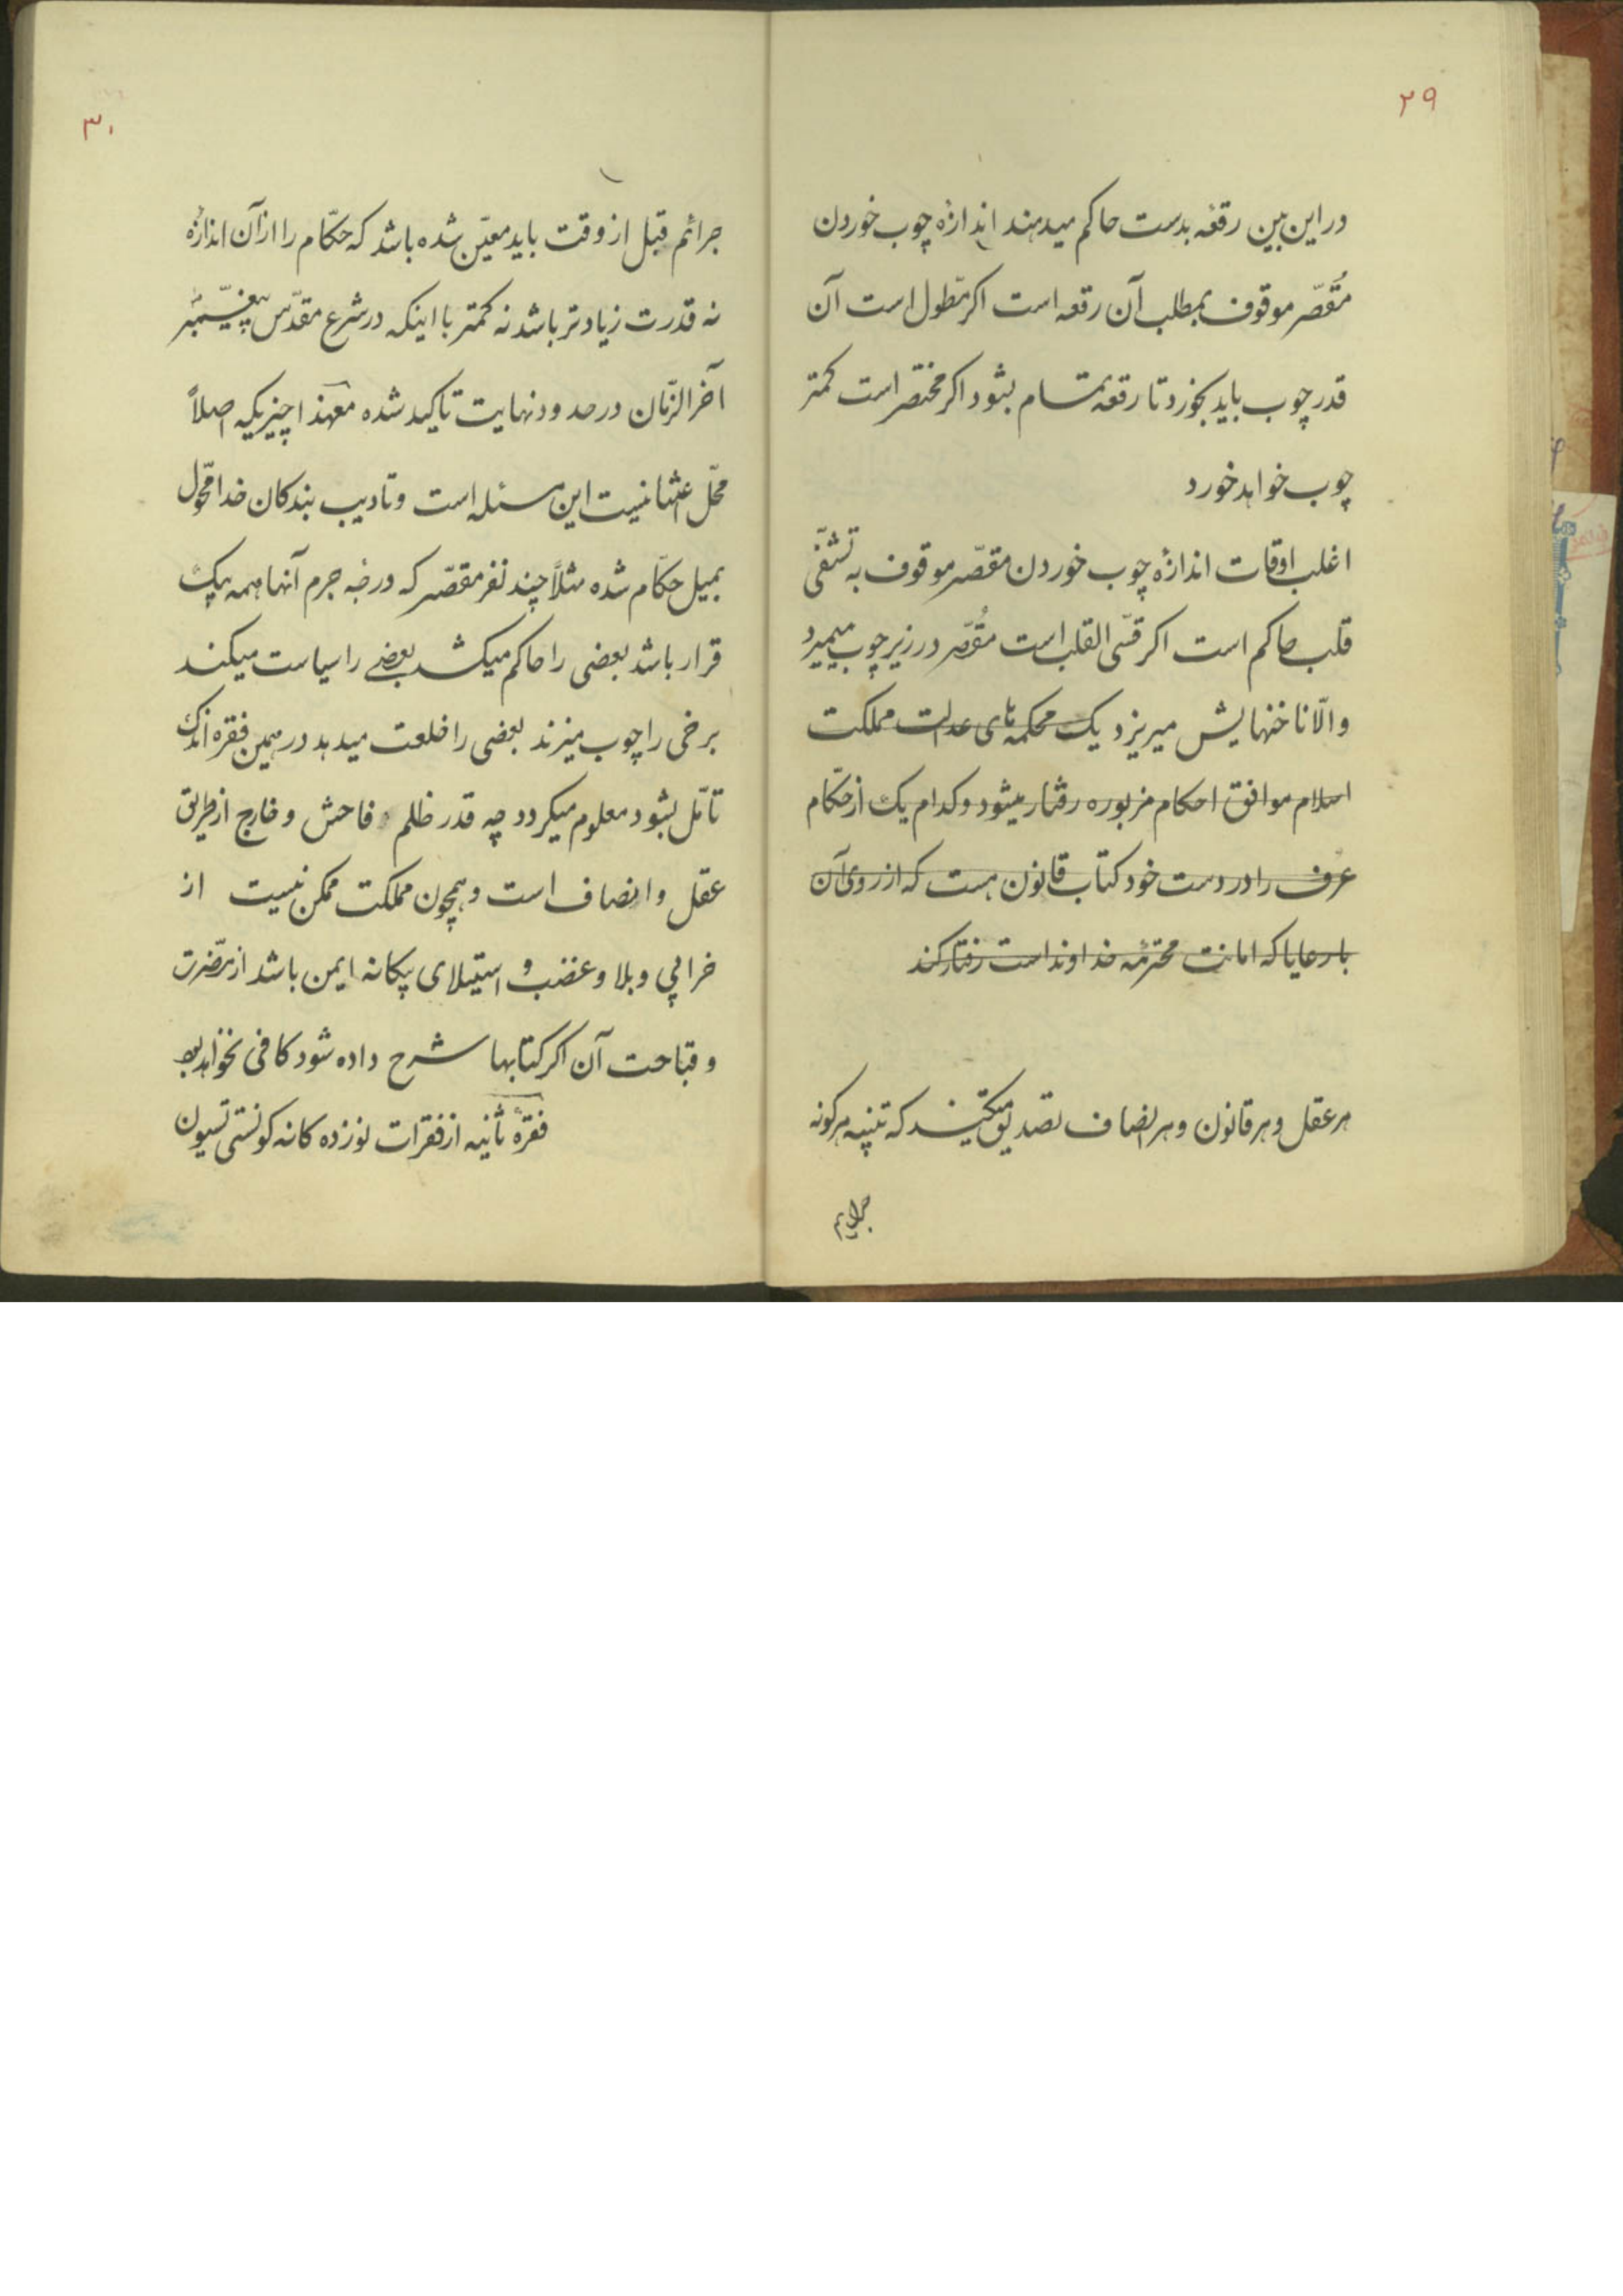 ۲۹
در این بین رقعه بدست حاکم میدهند اندازهٔ چوب خوردن
مُقصّر موقوف بمطلب آن رقعه است اکر مطّول است آن
قدر چوب باید بخورد تا رقعه تمام بشود اکر مختصر است کمتر
چوب خواهد خورد
اغلب اوقات اندازهٔ چوب خوردن مقصّر موقوف به تشفّی
قلب حاکم است اکر قسّی القلب است مُقصّر در زیر چوب میمیرد
و الّا ناخنهایش میریزد یک محکمه های عدالت مملکت
اسلام موافق احکام مزبوره رفتار میشود و کدام یک از حکّام
عرف را در دست خود کتاب قانون هست که از روی آن
با رعایا که امانت محترمه خداوند است رفتار کند
هر عقل و هر قانون و هر انصاف تصدیق میکنند که تنبیه هرکونه
جرایم
۳۰
جرائم قبل از وقت باید معیّن شده باشد که حکّام را از آن اندازه
نه قدرت زیادتر باشد نه کمتر با اینکه در شرع مقدّس پیغمبر
آخرالزّمان در حدود نهایت تاکید شده معهذا چیزیکه اصلاً
محّل اعتنا نیست این مسئله است و تادیب بندکان خدا محّول
بمیل حکّام شده مثلاً چند نفر مقصّر که درجه جرم آنها همه بیک
قرار باشد بعضی را حاکم میکشد بعضی را سیاست میکند
برخی را چوب میزند بعضی را خلعت میدهد در همین فقره اندک
تامّل بشود معلوم میکردد چه قدر ظلم فاحش و خارج از طریق
عقل و انصاف است و همچون مملکت ممکن نیست از
خرابی و بلا و غضب و استیلای بیکانه ایمن باشد از مضّرت
و قباحت آن اکر کتابها شرح داده شود کافی نخواهد بود
فقرهٔ ثانیه از فقرات نوزده کانه کونستی تسیون